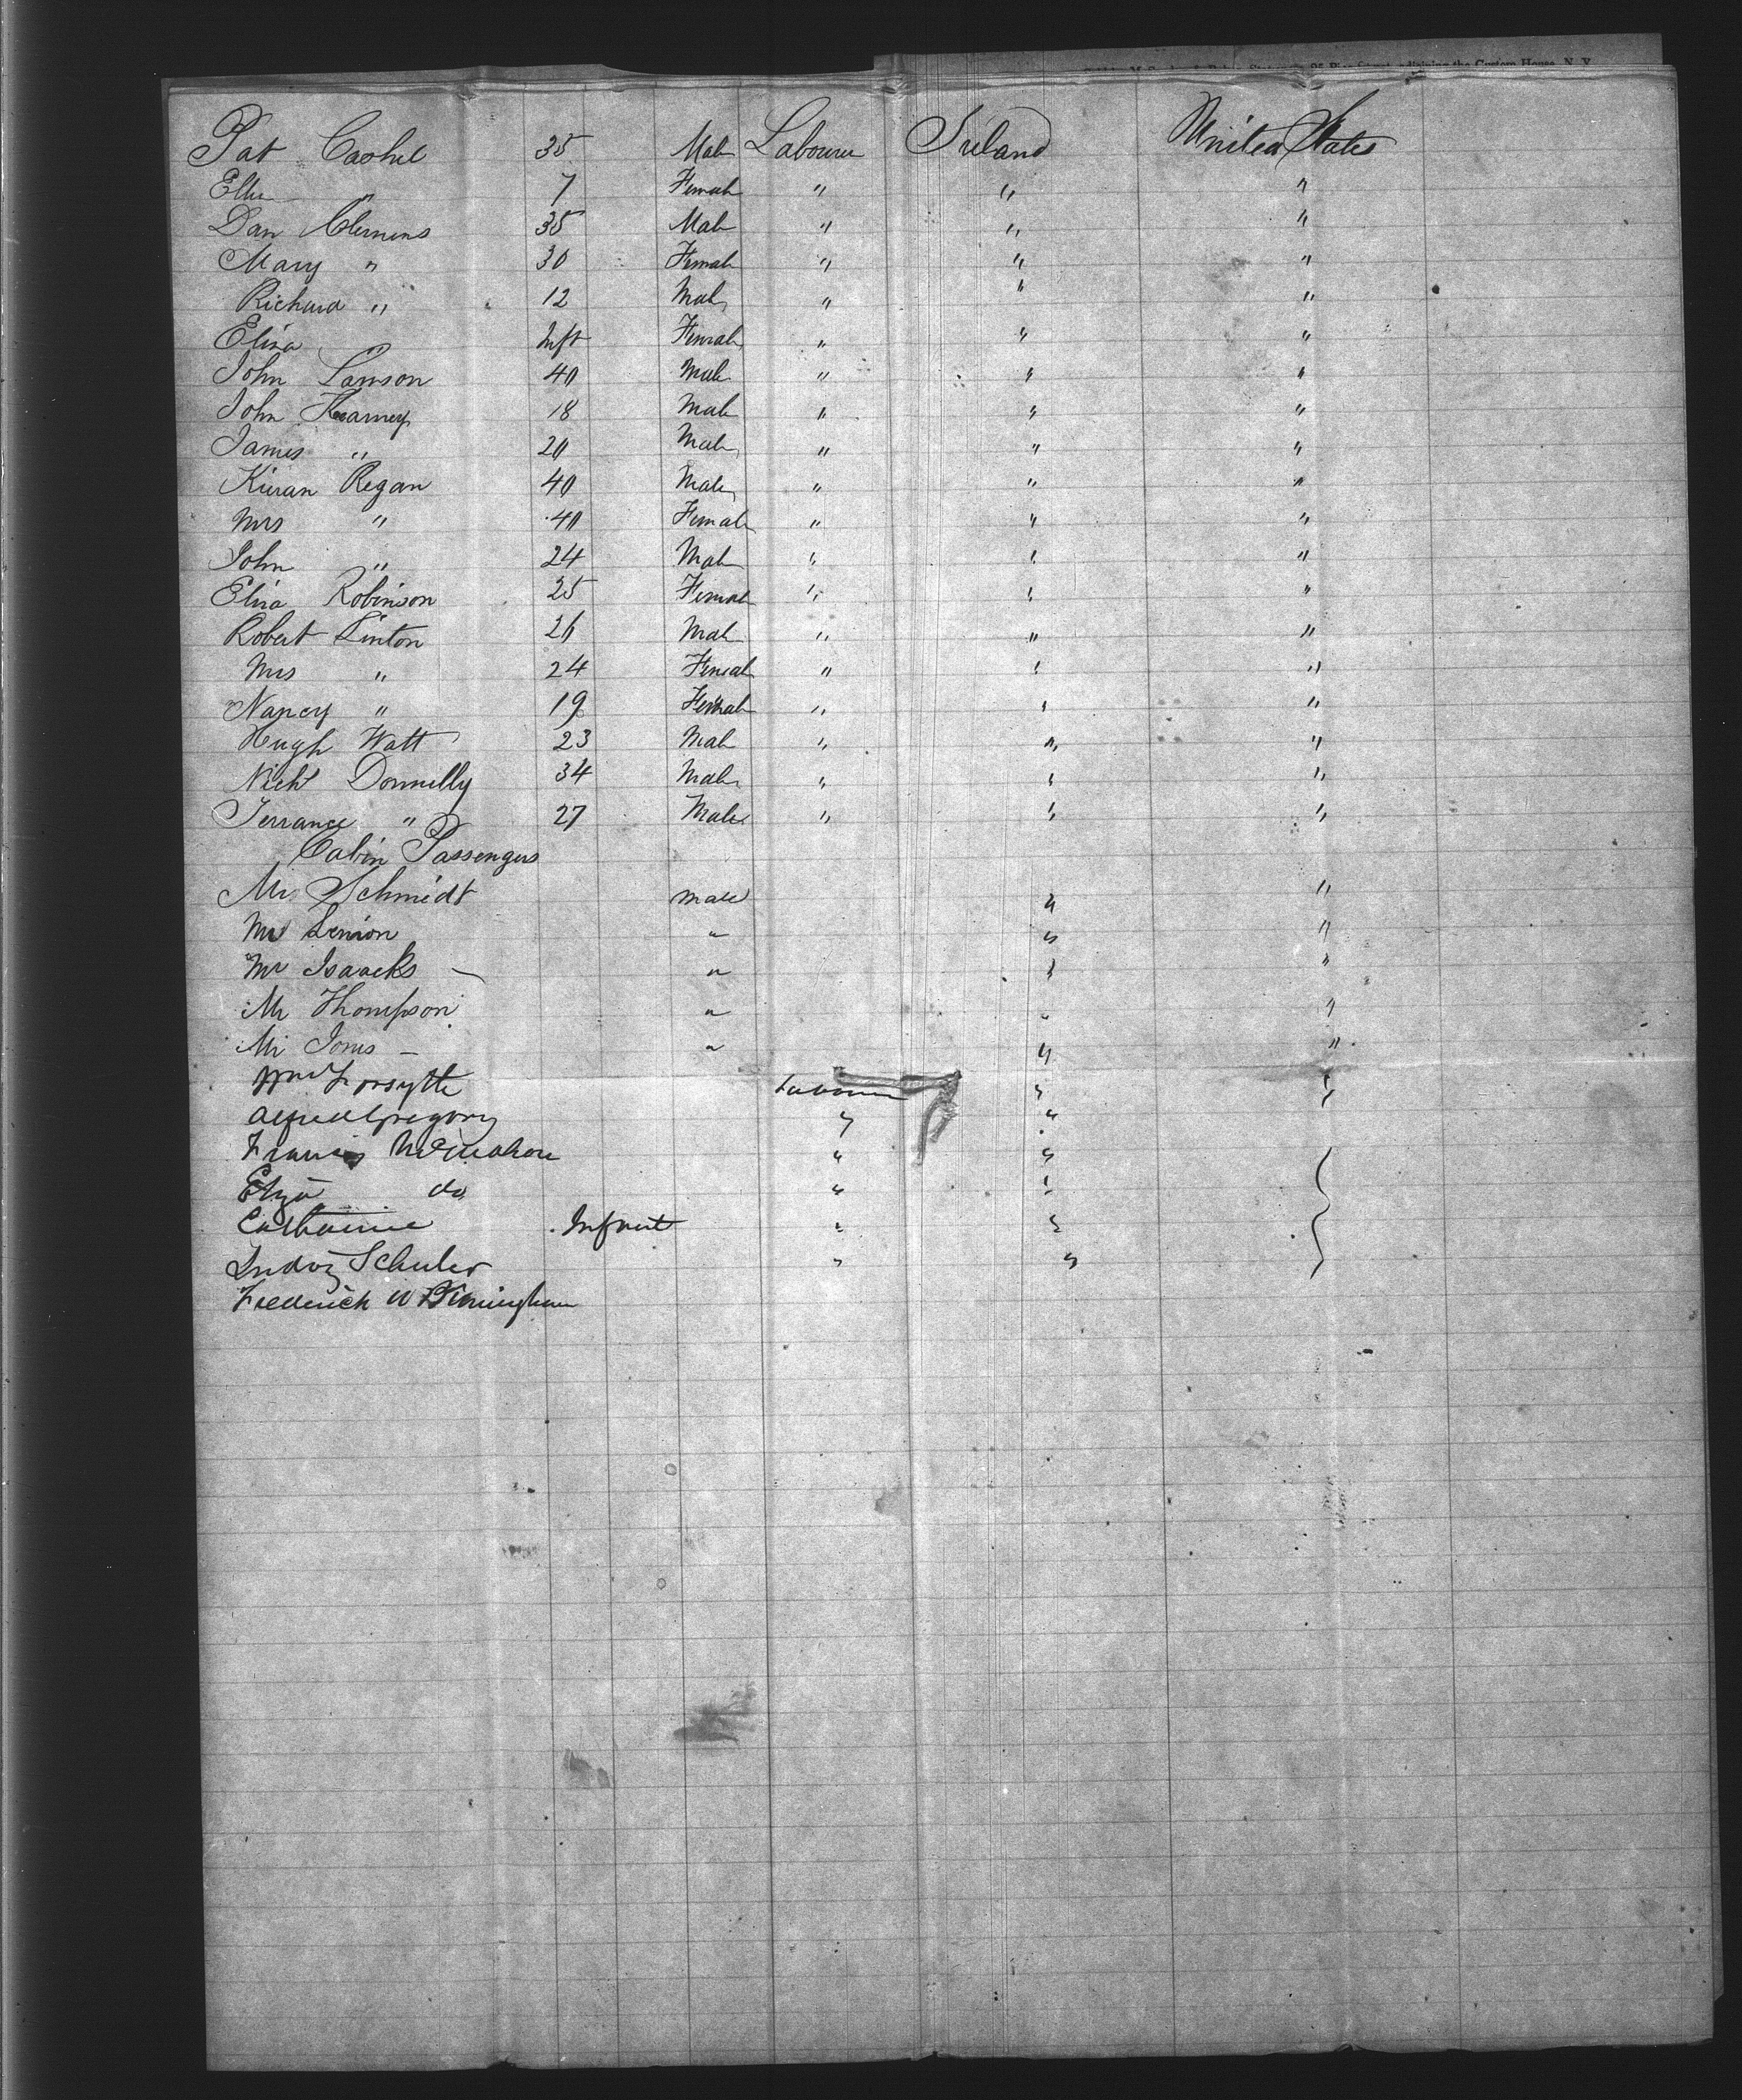 adjoining the Custom House, N. Y.
Pat Cashel 35 Male Labourer Ireland United States
Ellen " 7 Female " " "
Dan Clemens 35 Male " " "
Mary " 30 Female " " "
Richard " 12 Male " " "
Eliza " Inft Female " " "
John Lawson 40 Male " " "
John Kearney 18 Male " " "
James " 20 Male " " "
Kieran Regan 40 Male " " "
Mrs " 40 Female " " "
John " 24 Male " " "
Eliza Robinson 25 Female " " "
Robert Linton 26 Male " " "
Mrs " 24 Female " " "
Nancy " 19 Female " " "
Hugh Watt 23 Male " " "
Nichs Donnelly 34 Male " " "
Terrance " 27 Male " " "
Cabin Passengers
Mr Schmidt Male " "
Mr Lenion " " "
Mr Isaacks " " "
Mr Thompson " " "
Mr Jones " " "
Wm Forsythe Labourer " "
Alfred Gregory " "
Francis McMahon " "
Eliza do " "
Catharine Infant " "
Ludvig Schuler " "
Frederick W Birmingham